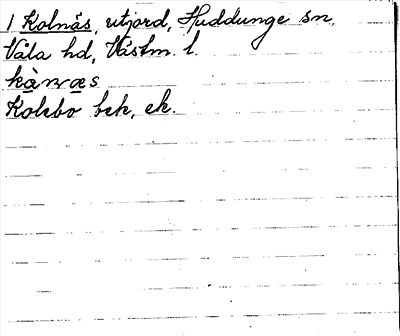 1 Kolnäs, utjord, Huddunge sn,
Våla hd, Västm. l.
kànæs
Kolebo bek, ek.